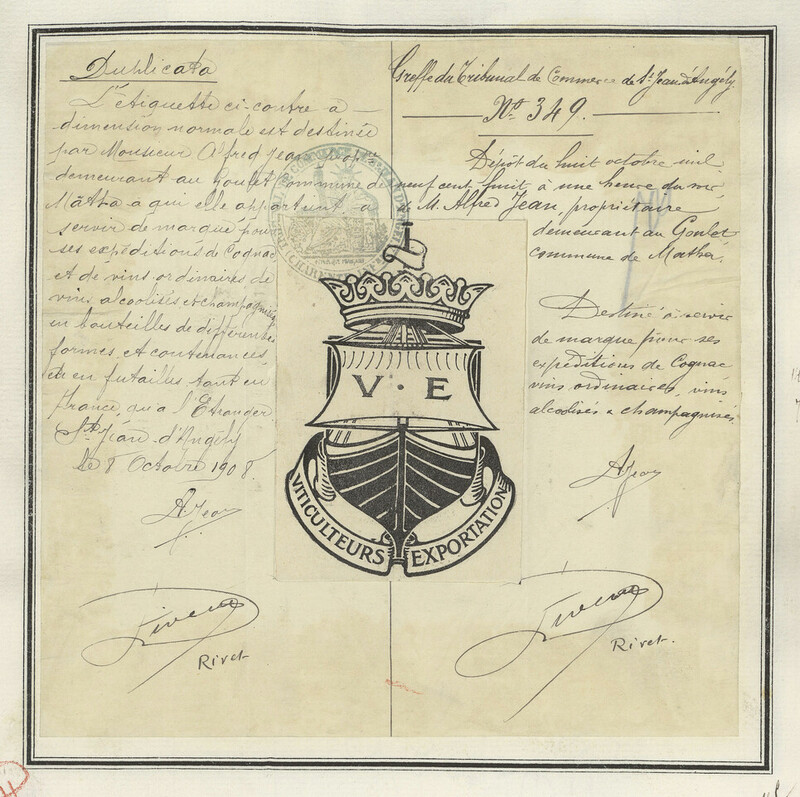 Duplicata
L'étiquette ci-contre a
dimension normale est destinée
par Monsieur Alfred Jean, prop.re
demeurant au Goulet commune de
Mâtha à qui elle appartient, à
servir de marque pour
ses expéditions de Cognac
et de vins ordinaires de
vins alcoolisés et champagnisés
en bouteilles de différentes
formes, et contenances,
et en futailles tant en
France, qu'a l'Etranger
St Jean-d'Angély
le 8 Octobre 1908.
A. Jean
Rivet
Greffe du Tribunal de Commerce de St Jean d'Angély
No 349.
Dépôt du huit octobre mil
neuf cent huit à une heure du soir,
de M. Alfred Jean, propriétaire
demeurant au Goulet
commune de Matha.
Destiné à servir
de marque pour ses
expéditions de Cognac
vins ordinaires, vins
alcoolisés & champagnisés.
A. Jean
Rivet.
V · E
VITICULTEURS EXPORTATION